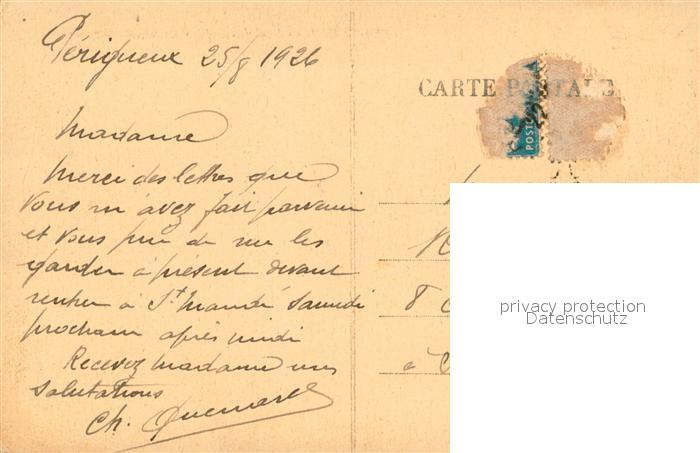 Périgueux 25/8 1926
CARTE POSTALE
POST
Madame
Merci des lettres que
vous m'avez fait parvenir
et vous prie de me les
garder à présent devant
rentrer à St Mandé Samedi
prochain après midi
Recevez Madame mes
Salutations
Ch.
8
à
privacy protection
Datenschutz